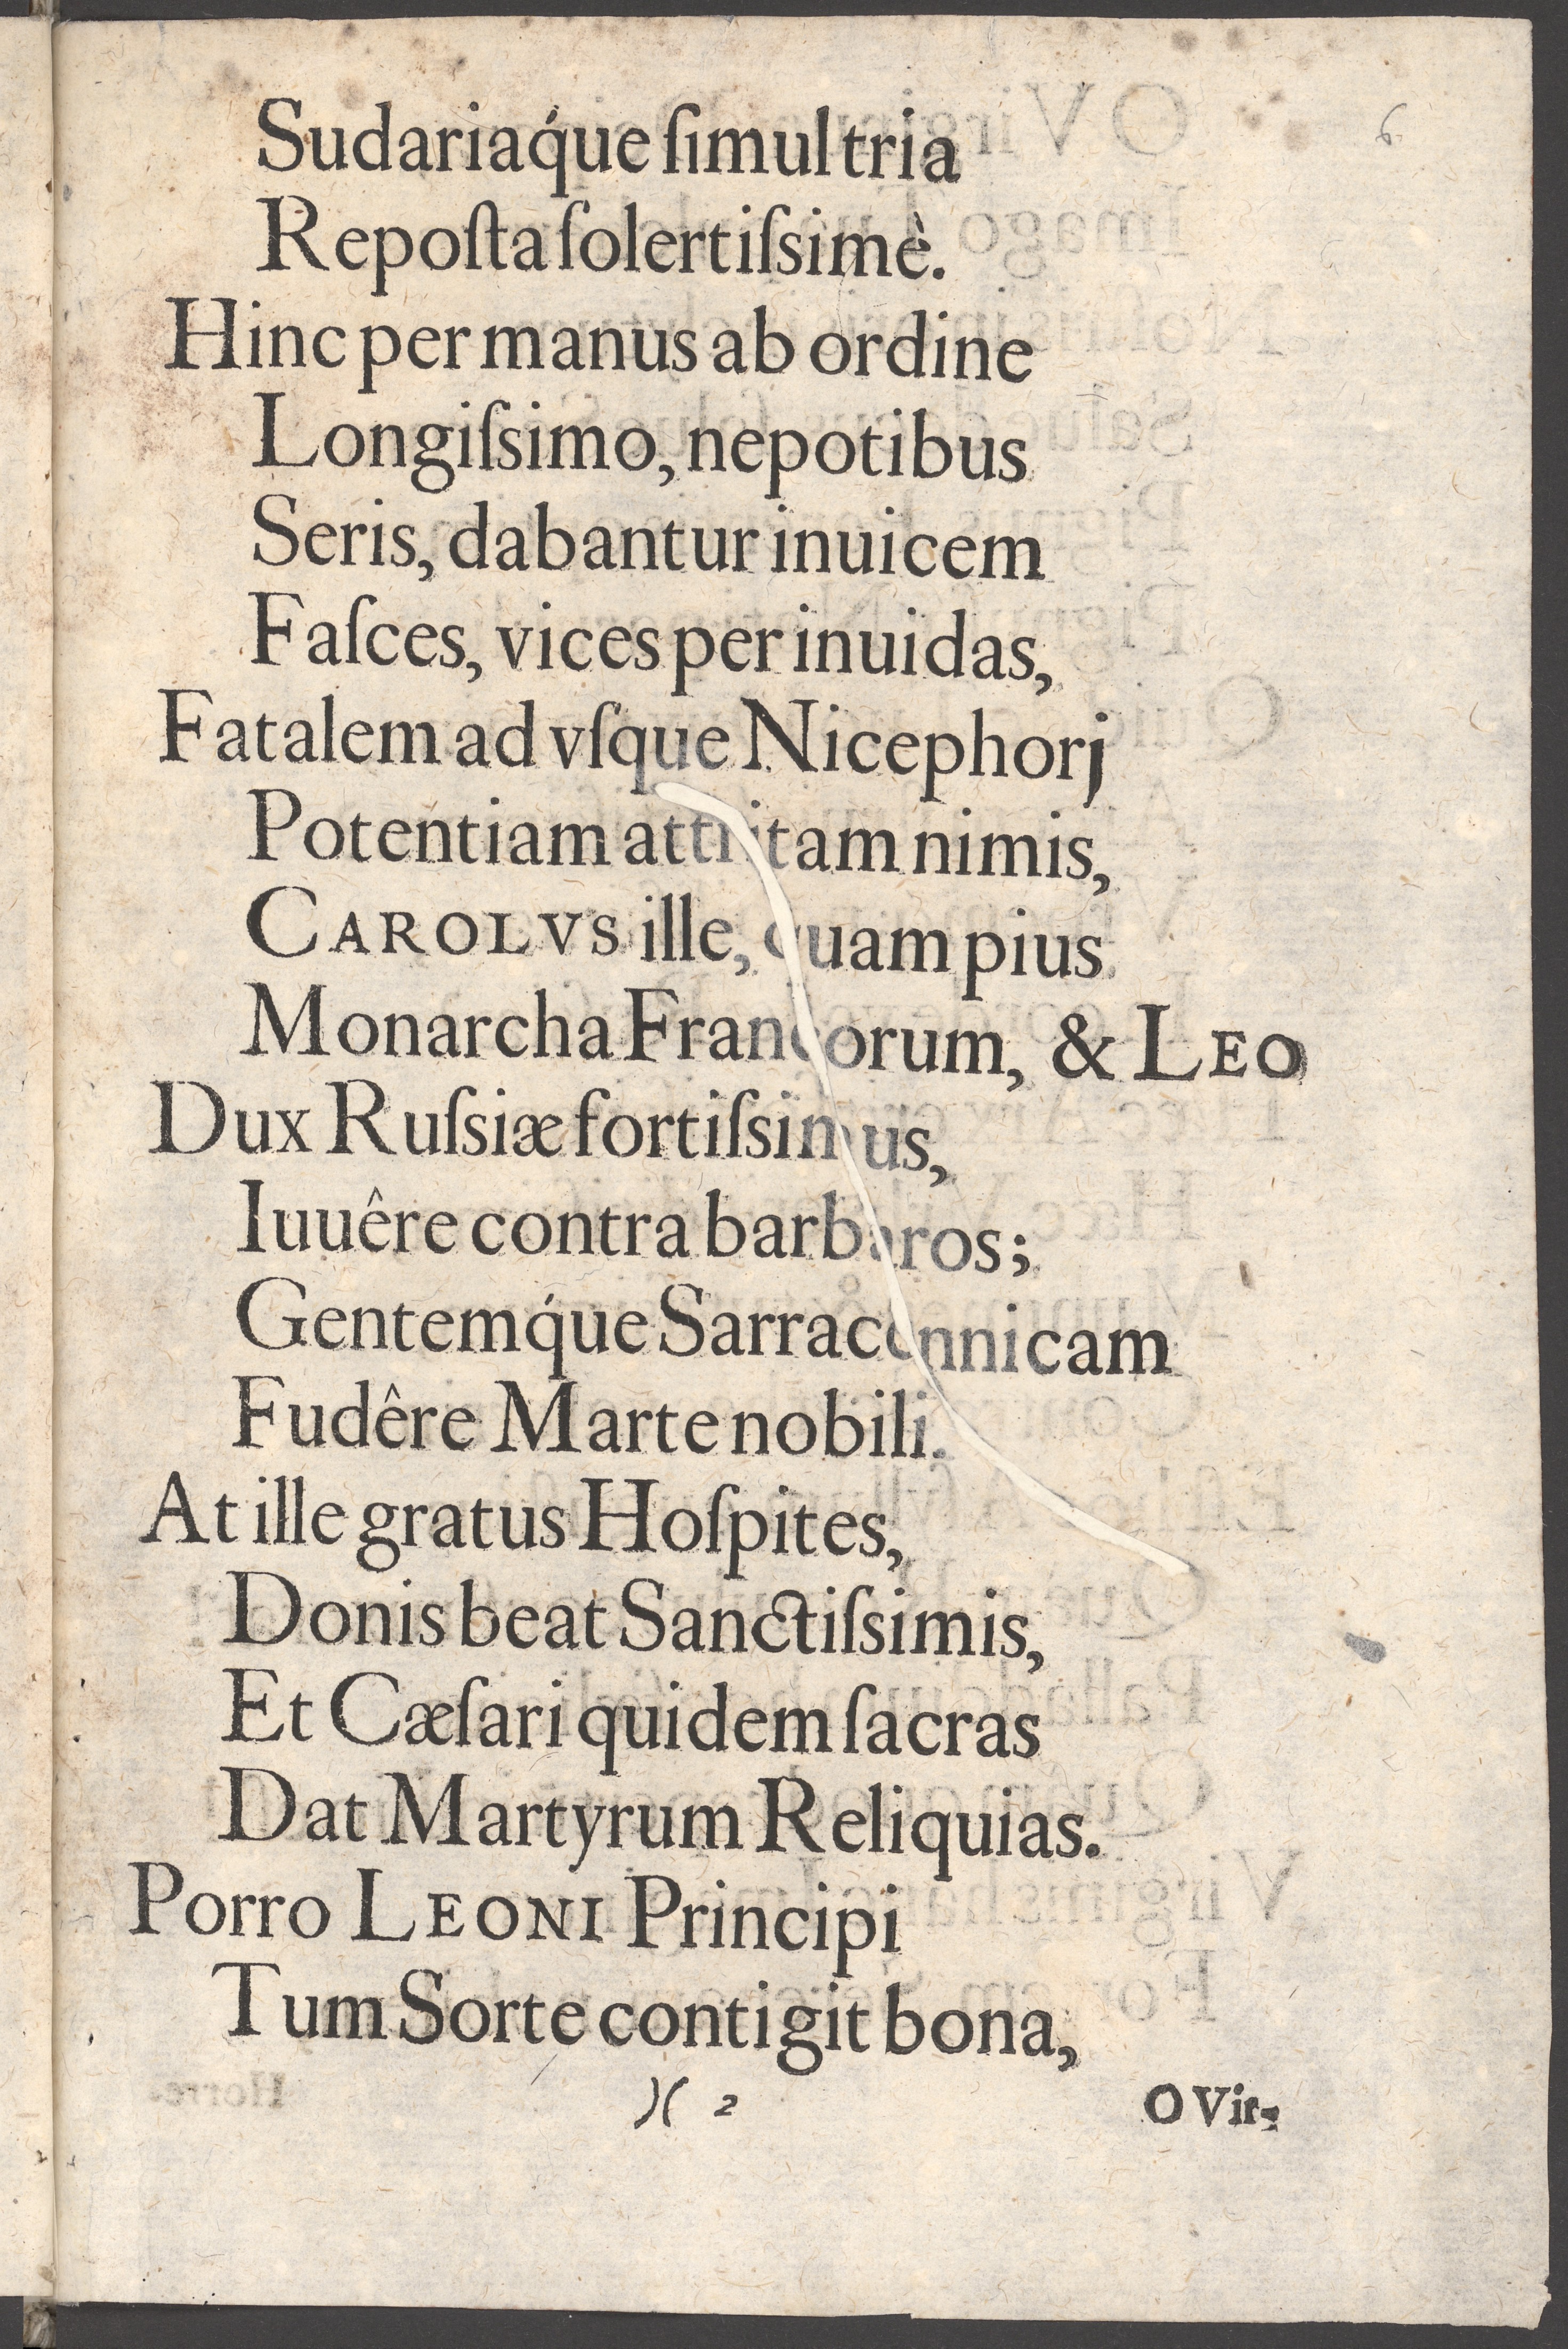 6.
Sudariaq́ue ſimul tria
Repoſta ſolertiſsimè.
Hinc per manus ab ordine
Longiſsimo, nepotibus
Seris, dabantur inuicem
Faſces, vices per inuidas,
Fatalem ad vſque Nicephorj
Potentiam attritam nimis,
CAROLVS ille, quam pius
Monarcha Francorum, & LEO
Dux Ruſsiæ fortiſsimus,
Iuuêre contra barbaros;
Gentemq́ue Sarracennicam
Fudêre Marte nobili.
At ille gratus Hoſpites,
Donis beat Sanctiſsimis,
Et Cæſari quidem ſacras
Dat Martyrum Reliquias.
Porro LEONI Principi
Tum Sorte contigit bona,
)( 2 O Vir-